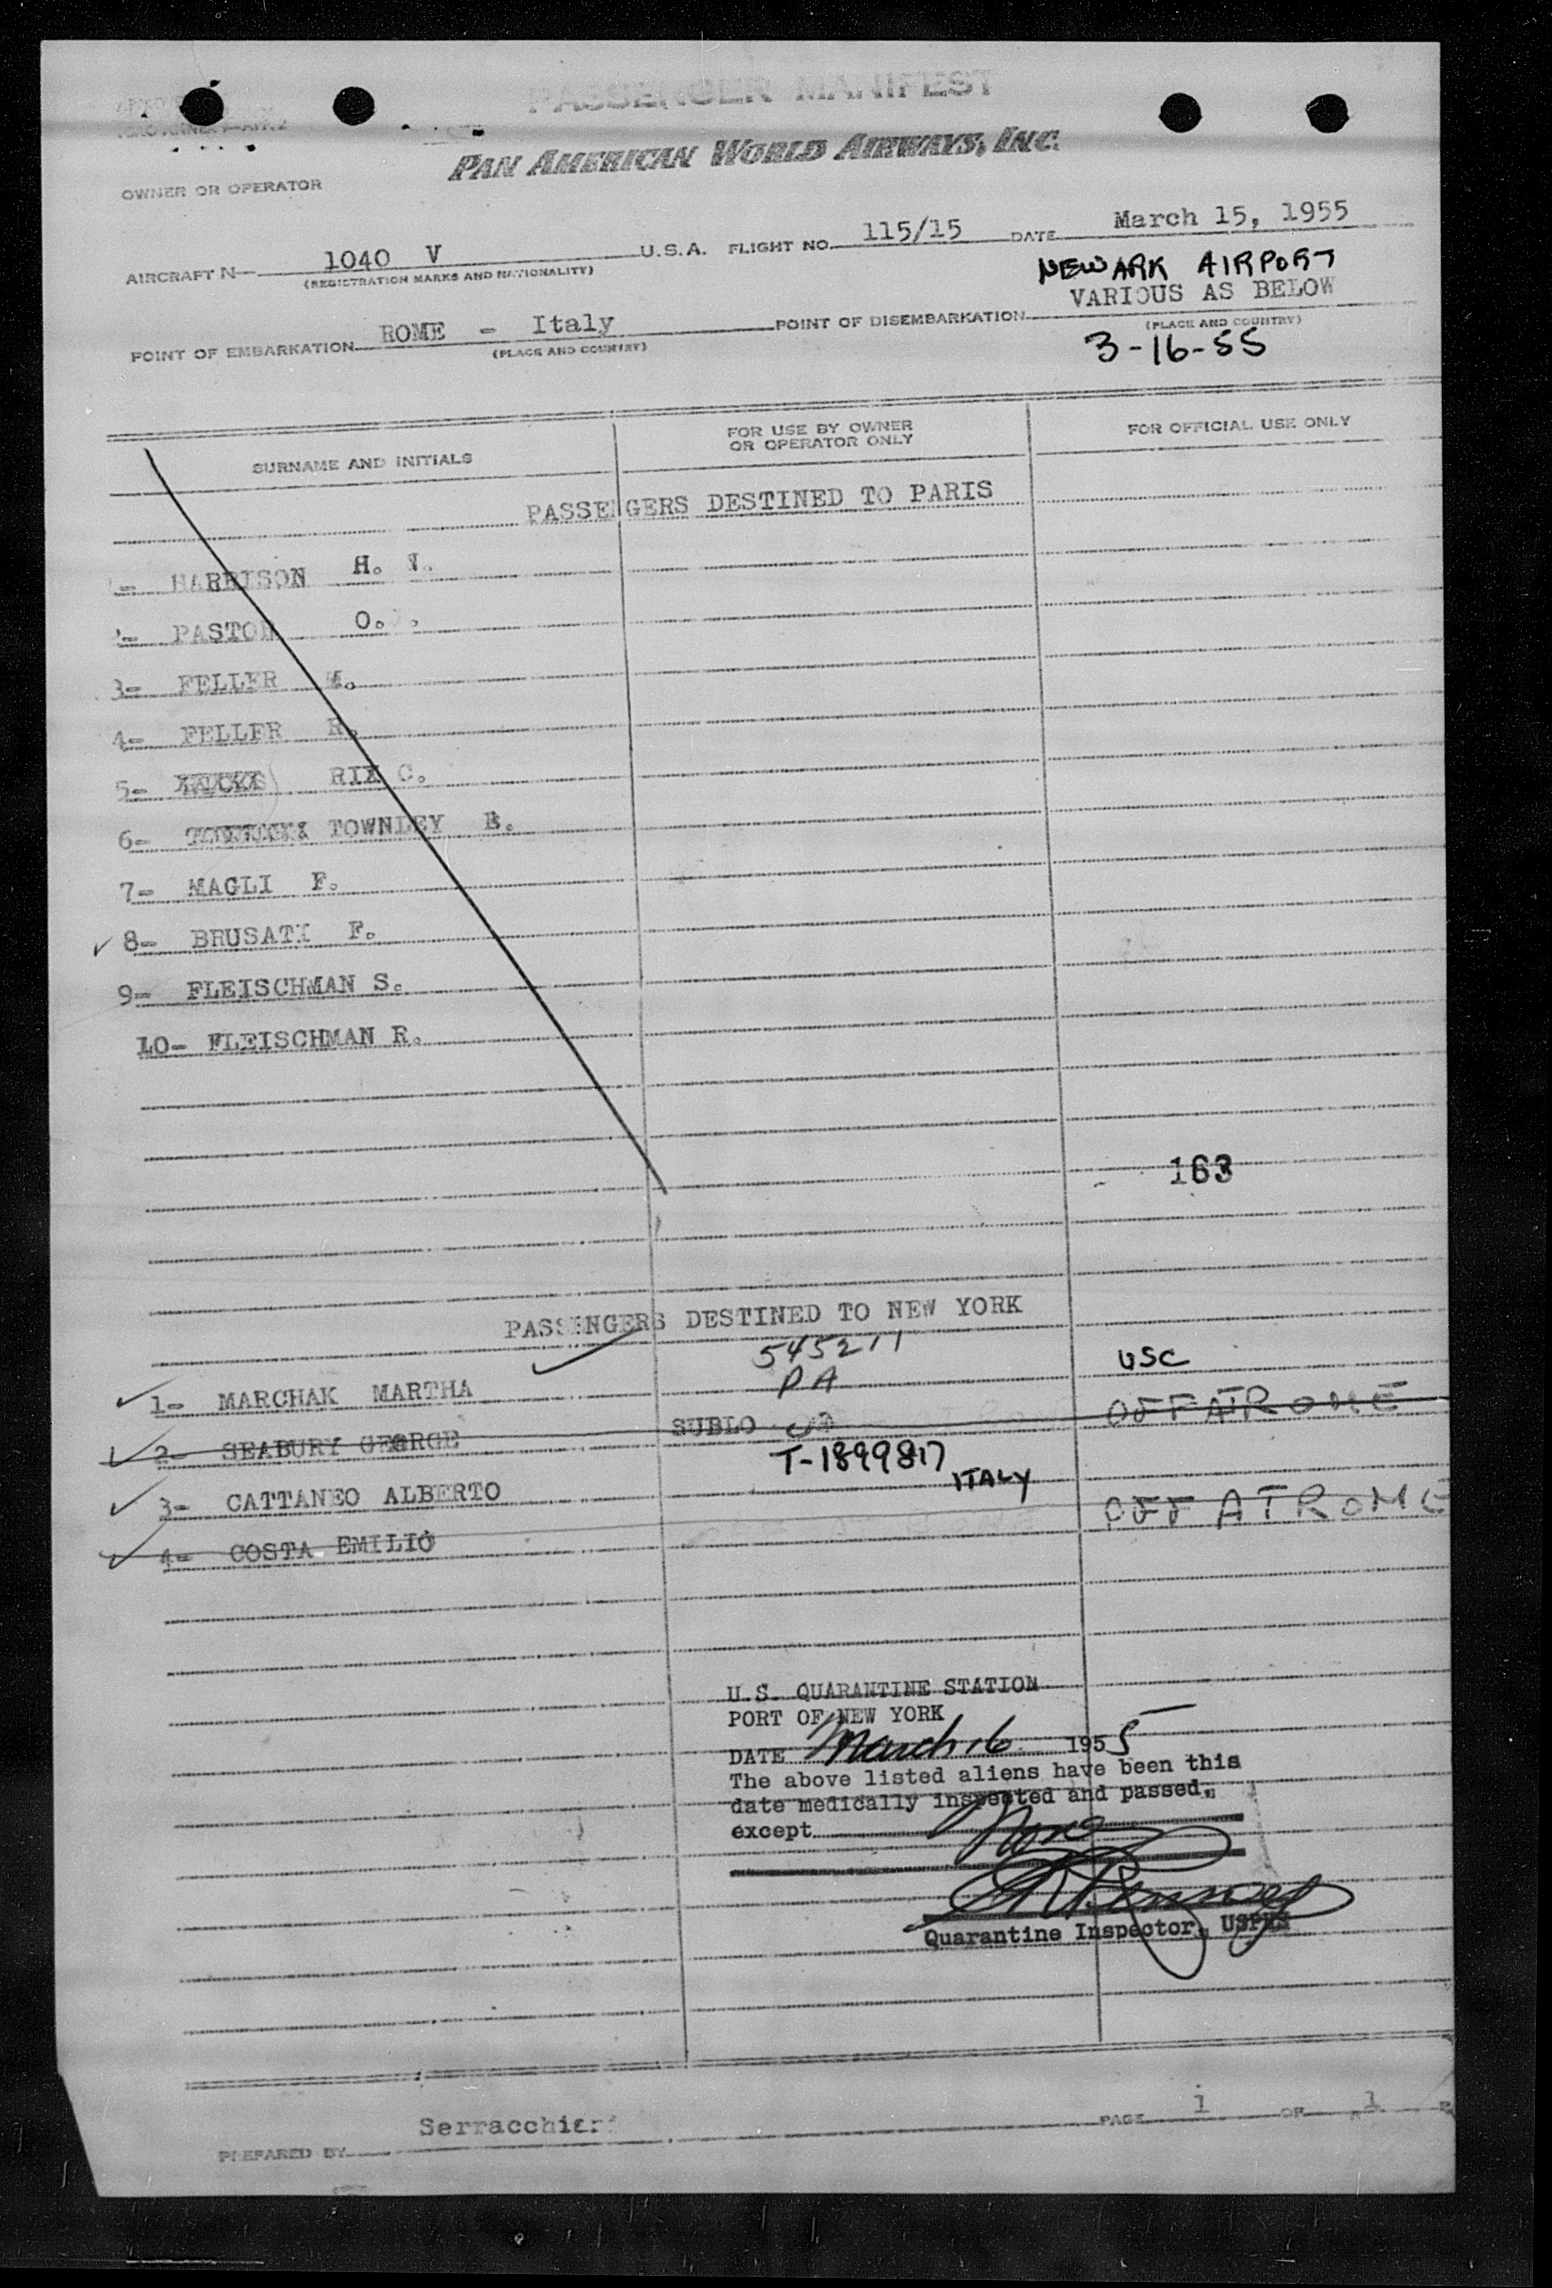 PASSENGER MANIFEST
PAN AMERICAN WORLD AIRWAYS, INC.
OWNER OR OPERATOR
AIRCRAFT N- 1040 V U.S.A. FLIGHT NO. 115/15 DATE March 15, 1955
(REGISTRATION MARKS AND NATIONALITY)
NEWARK AIRPORT
POINT OF EMBARKATION ROME - Italy POINT OF DISEMBARKATION VARIOUS AS BELOW
(PLACE AND COUNTRY) (PLACE AND COUNTRY)
3-16-55
SURNAME AND INITIALS FOR USE BY OWNER OR OPERATOR ONLY FOR OFFICIAL USE ONLY
PASSENGERS DESTINED TO PARIS
1- HARRISON H. V.
2- PASTOR O.
3- FELLER M.
4- FELLER R.
5- RIX C.
6- TOWNLEY E.
7- MAGLI F.
8- BRUSATI F.
9- FLEISCHMAN S.
10- FLEISCHMAN R.
163
PASSENGERS DESTINED TO NEW YORK
545211 USC
1- MARCHAK MARTHA PA
2- SEABURY GEORGE SUBLO OFF AT ROME
T-1899817 ITALY
3- CATTANEO ALBERTO
4- COSTA EMILIO OFF AT ROME
U.S. QUARANTINE STATION
PORT OF NEW YORK
DATE March 16 1955
The above listed aliens have been this
date medically inspected and passed,
except None
Quarantine Inspector, USPHS
PREPARED BY Serracchiari PAGE 1 OF 1